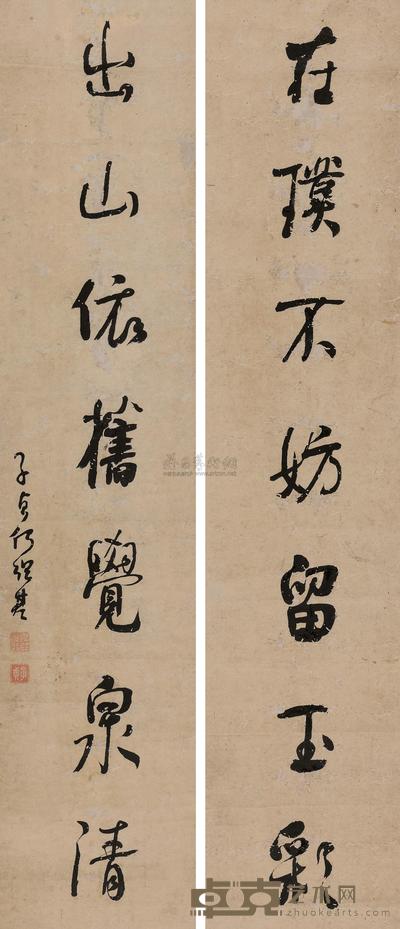 在璞不妨留玉彩
出山依舊覺泉清
子貞何紹基
卓克艺术网
www.zhuokearts.com